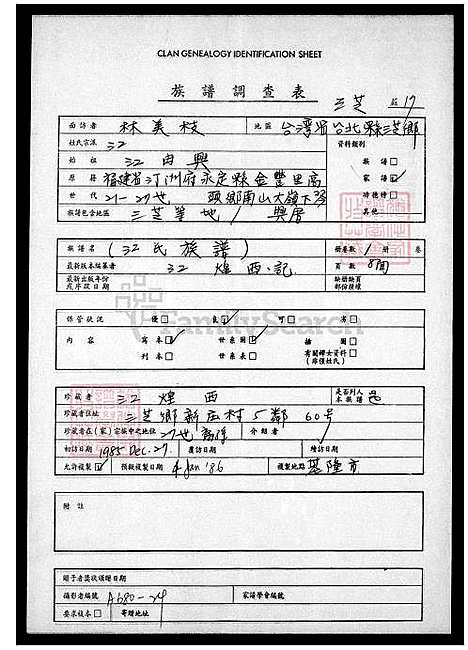 CLAN GENEALOGY IDENTIFICATION SHEET
族譜調查表
三芝 17
面訪者 林美枝 地區 台灣省台北縣三芝鄉
姓氏宗派 江 資料類別
始祖 江由興 族譜□
原籍 福建省汀州府永定縣金豐里高 家譜
世代 21-27世 頭鄉南山大嶺下 功德榜□
族譜包含地區 三芝等地 其他
族譜名(江氏族譜) 冊卷數 1 冊 卷
最新版本編纂者 江煌西記 頁數
最新出版年份及序跋日期 缺冊缺頁部份後補
保管狀況 優□ 良 可□ 劣□
內容 寫本 世系圖 插圖□
刊本□ 世系表□ 有關婦女資料(節僅姓氏)□
FamilySearch
珍藏者 江煌西 是否列入本族譜
珍藏者住址 三芝鄉新庄村5鄰60号
珍藏者在(家)宗族中之地位 27世裔孫 介紹者
初訪日期 1985 Dec.27. 覆訪日期 續訪日期
允許複製 預擬複製日期 4 Jan '86 複製地點 基隆市
附註
贈予者獎狀頒贈日期
攝影者編號 A680-24 家譜學會編號
要求複本□ 寄贈地址